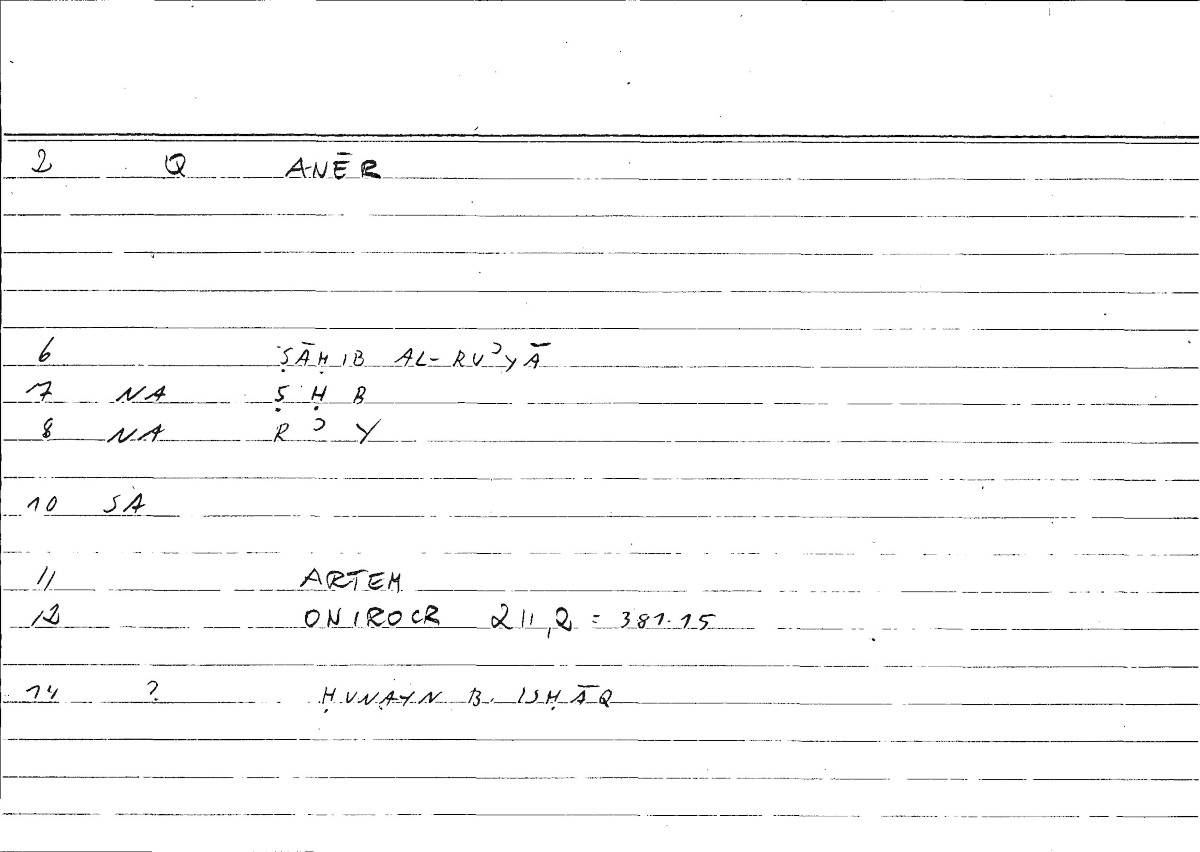 2 Q ANĒR
6 ṢĀḤIB AL-RUʾYĀ
7 NA Ṣ Ḥ B
8 NA R ʾ Y
10 SA
11 ARTEM
12 ONIROCR 211,2 = 381.15
14 ? ḤUNAYN B. ISḤĀQ